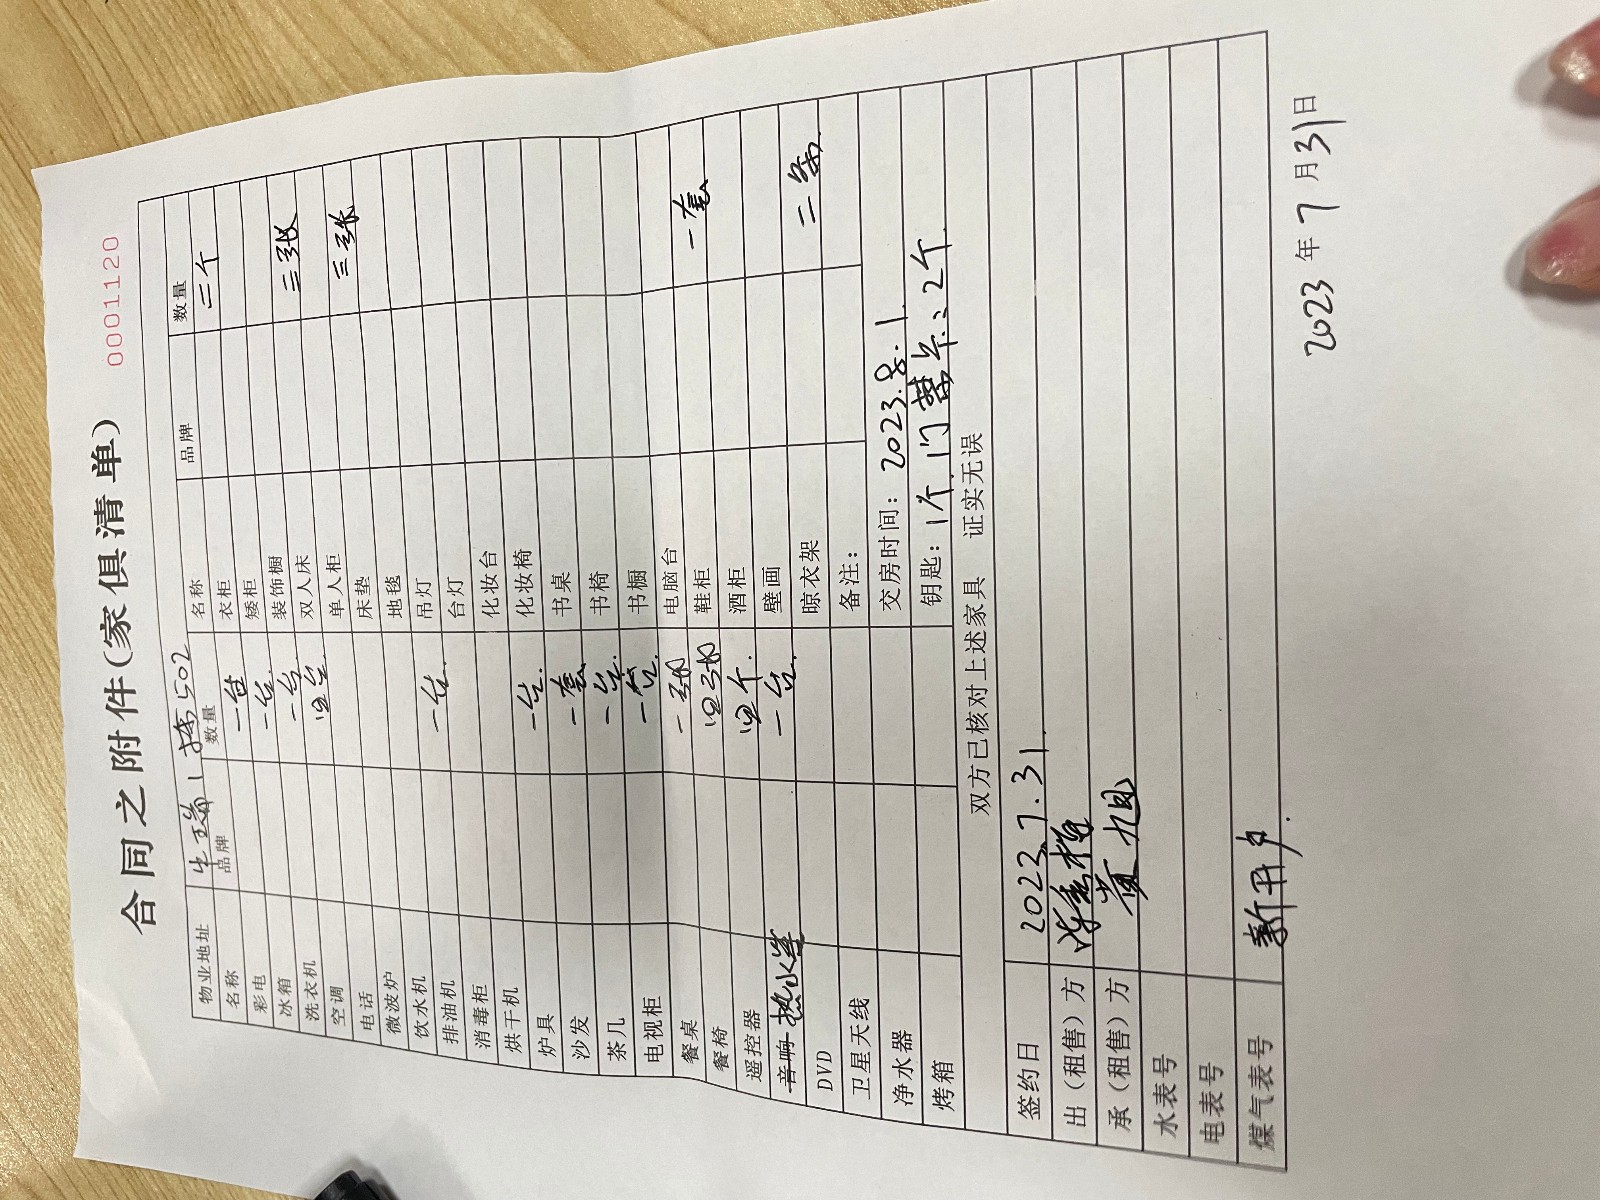 0001120
合同之附件(家俱清单)
物业地址 1栋502
名称 品牌 数量 名称 品牌 数量
彩电 一台 衣柜 三个
冰箱 一台. 矮柜
洗衣机 一台 装饰橱
空调 四台. 双人床 三张
电话 单人柜
微波炉 床垫 三张
饮水机 地毯
排油机 一台. 吊灯
消毒柜 台灯
烘干机 化妆台
炉具 一台. 化妆椅
沙发 一套 书桌
茶几 一台. 书椅
电视柜 一台. 书橱
餐桌 一张 电脑台
餐椅 四张 鞋柜 一套
遥控器 四个. 酒柜
音响 热水器 一台. 壁画
DVD 晾衣架 二条.
卫星天线 备注：
净水器 交房时间：2023.8.1
烤箱 钥匙：1个 门禁卡：2个
双方已核对上述家具 证实无误
签约日 2023.7.31.
出（租售）方
承（租售）方 黄旭
水表号
电表号
煤气表号 新开户.
2023 年 7 月 31 日